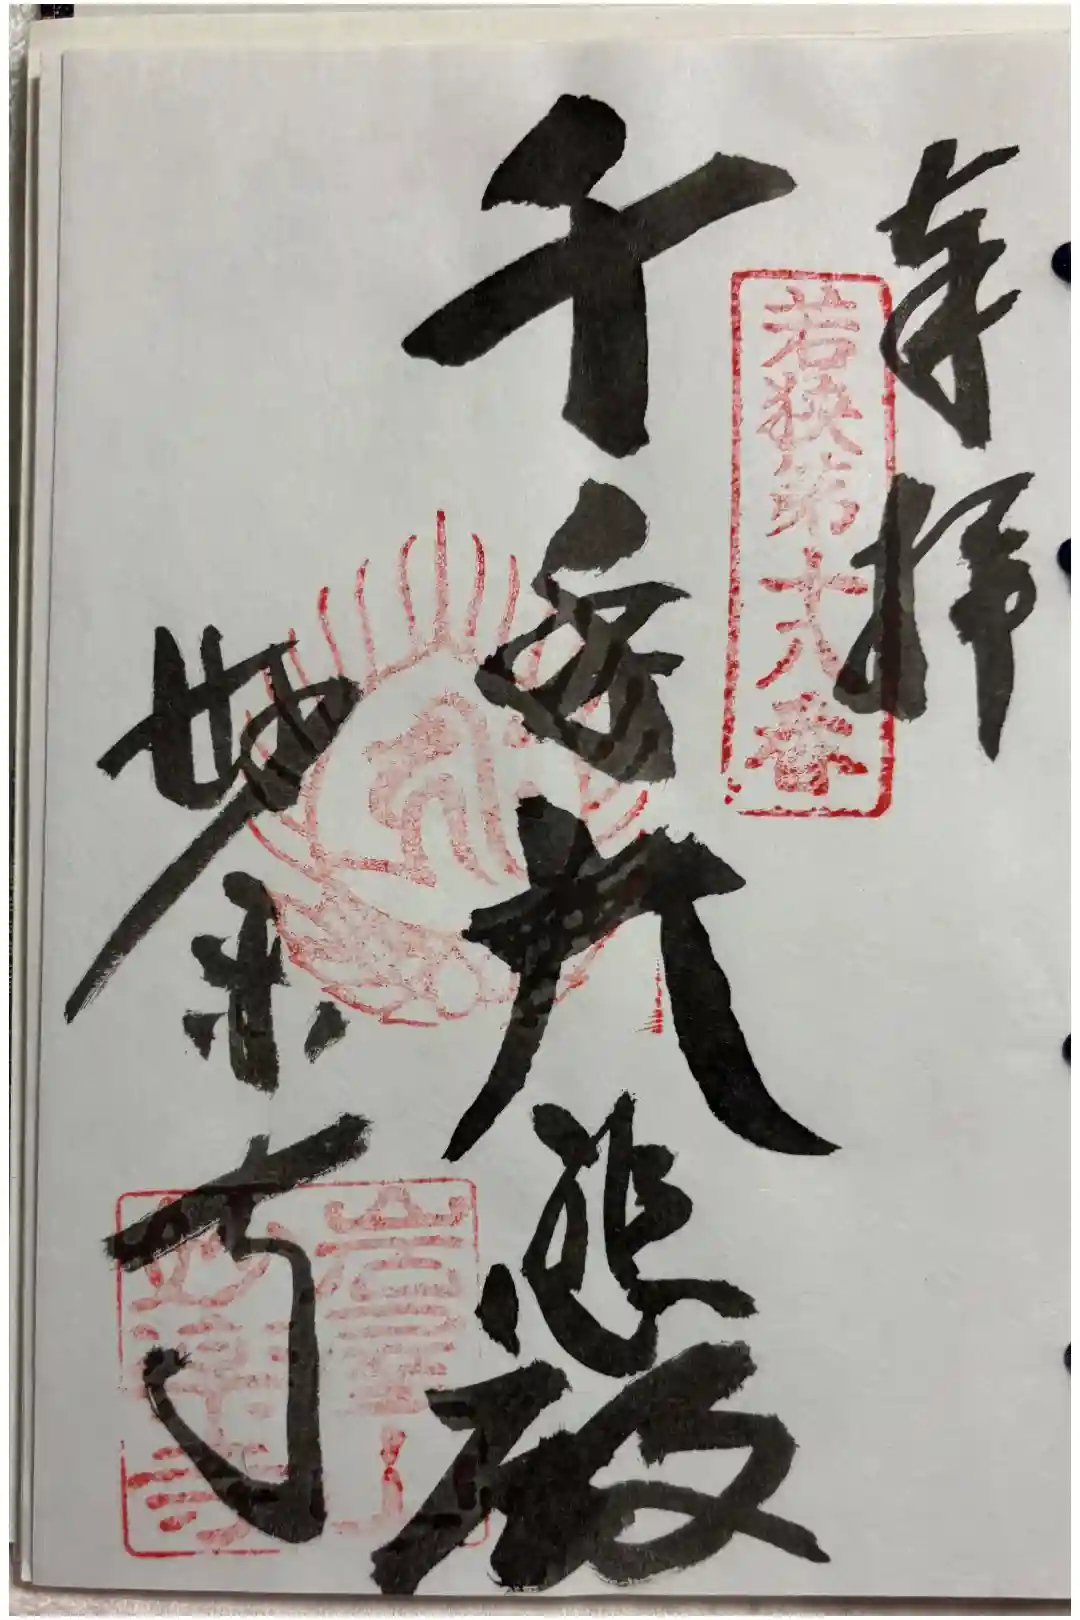 奉拝
若狭第十八番
千手大悲殿
妙楽寺